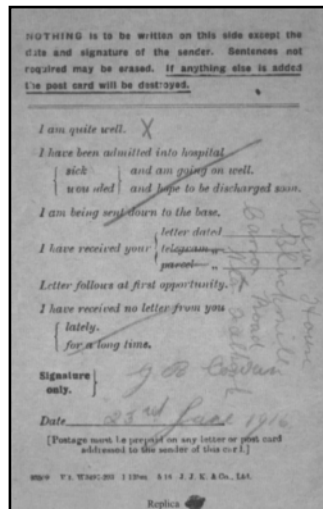 NOTHING is to be written on this side except the
date and signature of the sender. Sentences not
required may be erased. If anything else is added
the post card will be destroyed.
I am quite well. X
I have been admitted into hospital
sick and am going on well.
wounded and hope to be discharged soon.
I am being sent down to the base.
letter dated
I have received your telegram „
parcel „
Letter follows at first opportunity.
I have received no letter from you
lately.
for a long time.
Signature
only.
Date 23rd 1916
[Postage must be prepaid on any letter or post card
addressed to the sender of this card.]
J. J. K. & Co., Ltd.
Replica
Road